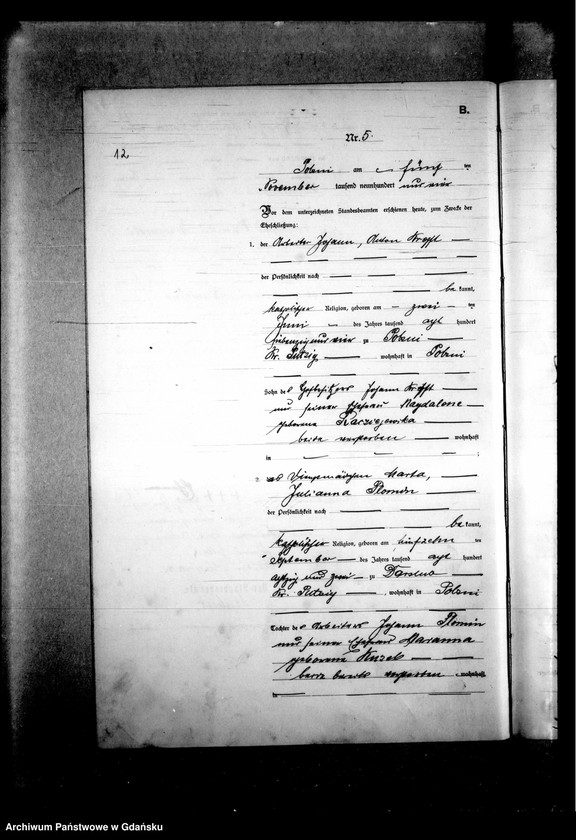 B.
Nr. 5.
12
am fünf ten
November tausend neunhundert und vier
Vor dem unterzeichneten Standesbeamten erschienen heute, zum Zwecke der
Eheschließung:
1. der Arbeiter Johann,
der Persönlichkeit nach
be kannt,
katholischer Religion, geboren am zwei ten
Juni des Jahres tausend acht hundert
siebenzig und vier zu
Kr. Putzig wohnhaft in
Sohn des Johann
und seiner Ehefrau Magdalene
geborene
beide verstorben wohnhaft
in ;
2. das Dienstmädchen Marta,
Julianna Plomin
der Persönlichkeit nach
be kannt,
katholischer Religion, geboren am fünfzehn ten
September des Jahres tausend acht hundert
achtzig und zwei zu Darslub
Kr. Putzig, wohnhaft in
Tochter des Arbeiters Johann Plomin
und seiner Ehefrau Marianna
geborene
beide bereits verstorben wohnhaft
in
Archiwum Państwowe w Gdańsku